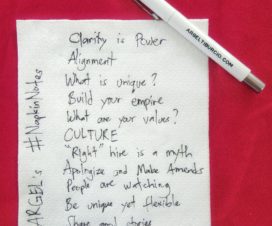 ARGEL's #NapkinNotes
Clarity is Power
Alignment
What is unique?
Build your empire
What are your values?
CULTURE
"Right" hire is a myth
Apologize and Make Amends
People are watching
Be unique yet flexible
Share good stories
ARGELTIBURCIO.COM